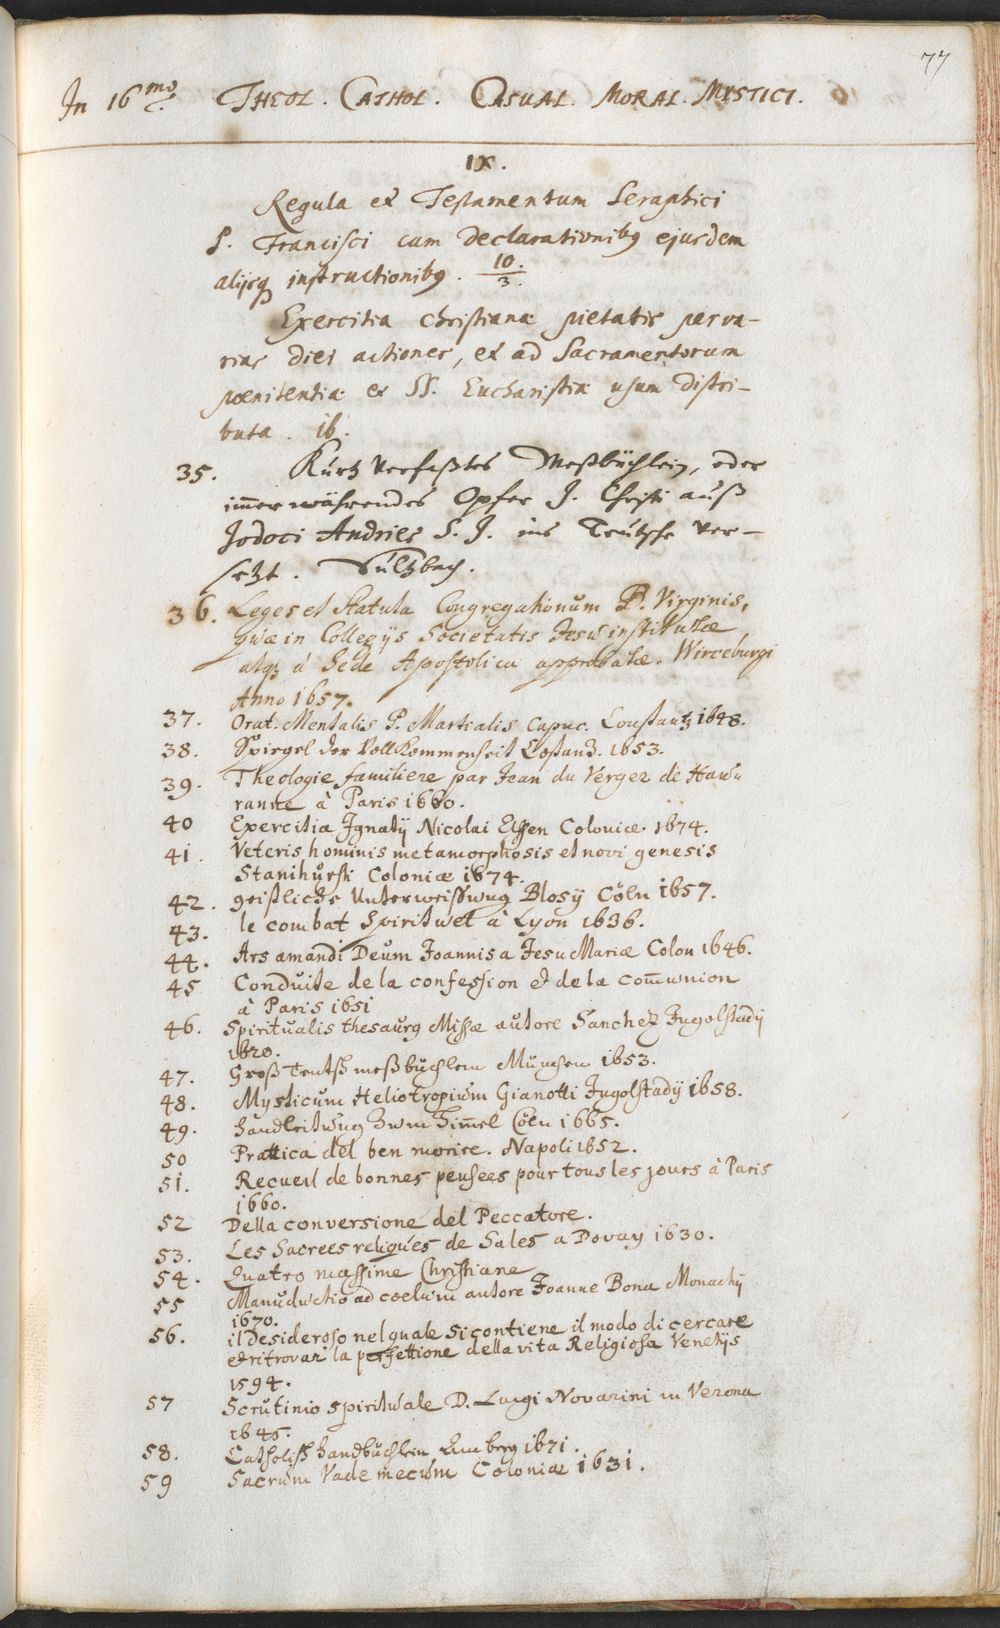 77
In 16mo. THEOL. CATHOL. CASUAL. MORAL. MYSTICI.
IX.
Regula et Testamentum Seraphici
P. Francisci cum Declarationibꝰ ejusdem
alijsqꝫ instructionibꝰ. 10/3.
Exercitia christianæ pietatis per va-
rias diei actiones, et ad Sacramentorum
pœnitentiæ et SS. Eucharistiæ usum distri-
buta. ib.
35. Kurtz verfaßtes Meßbüchlein, oder
im̄erwährendes Opfer J. Christi auß
Jodoci Andries S.J. ins Teutsche ver-
setzt. Sultzbach.
36. Leges et Statuta Congregationum B. Virginis,
quæ in Collegijs Societatis Jesu institutæ
atqꝫ à Sede Apostolica approbatæ. Wirceburgi
Anno 1657.
37. Orat. Mentalis P. Martialis Capuc. Constantz 1648.
38. Spiegel der Vollkommenheit Costanz. 1653.
39. Theologie familiere par Jean du Verger de Hau
ranne à Paris 1660.
40 Exercitia Ignatij Nicolai Elffen Coloniæ. 1674.
41. Veteris hominis metamorphosis et novi genesis
Stanihursti Coloniæ 1674.
42. geistliche Unterweissung Blosij Cöln 1657.
43. le combat Spirituel à Lyon 1636.
44. Ars amandi Deum Joannis a Jesu Mariæ Colon 1646.
45 Conduite de la confession et de la com̄union
à Paris 1651
46. Spiritualis thesaurꝰ Missæ autore Sanchez Ingolstadij
1620.
47. Groß Teutsch meßbuchlein München 1653.
48. Mysticum Heliotropium Gianotti Ingolstadij 1658.
49. handleitung zum him̄el Cöln 1665.
50 Prattica del ben morire. Napoli 1652.
51. Recueil de bonnes pensées pour tous les jours à Paris
1660.
52 Della conversione del Peccatore.
53. Les Sacrees reliques de Sales a Dovay 1630.
54. Quatro massime Christiane
55 Manuductio ad coelum autore Joanne Bona Monachij
1670.
56. il Desideroso nel quale si contiene il modo di cercare
et ritrovar la perfettione della vita Religiosa Venetijs
1594.
57 Scrutinio spirituale D. Luigi Novarini in Verona
1645.
58. Catholisch handbüchlein Amberg 1671.
59 Sacrum Vade mecum Coloniæ 1631.